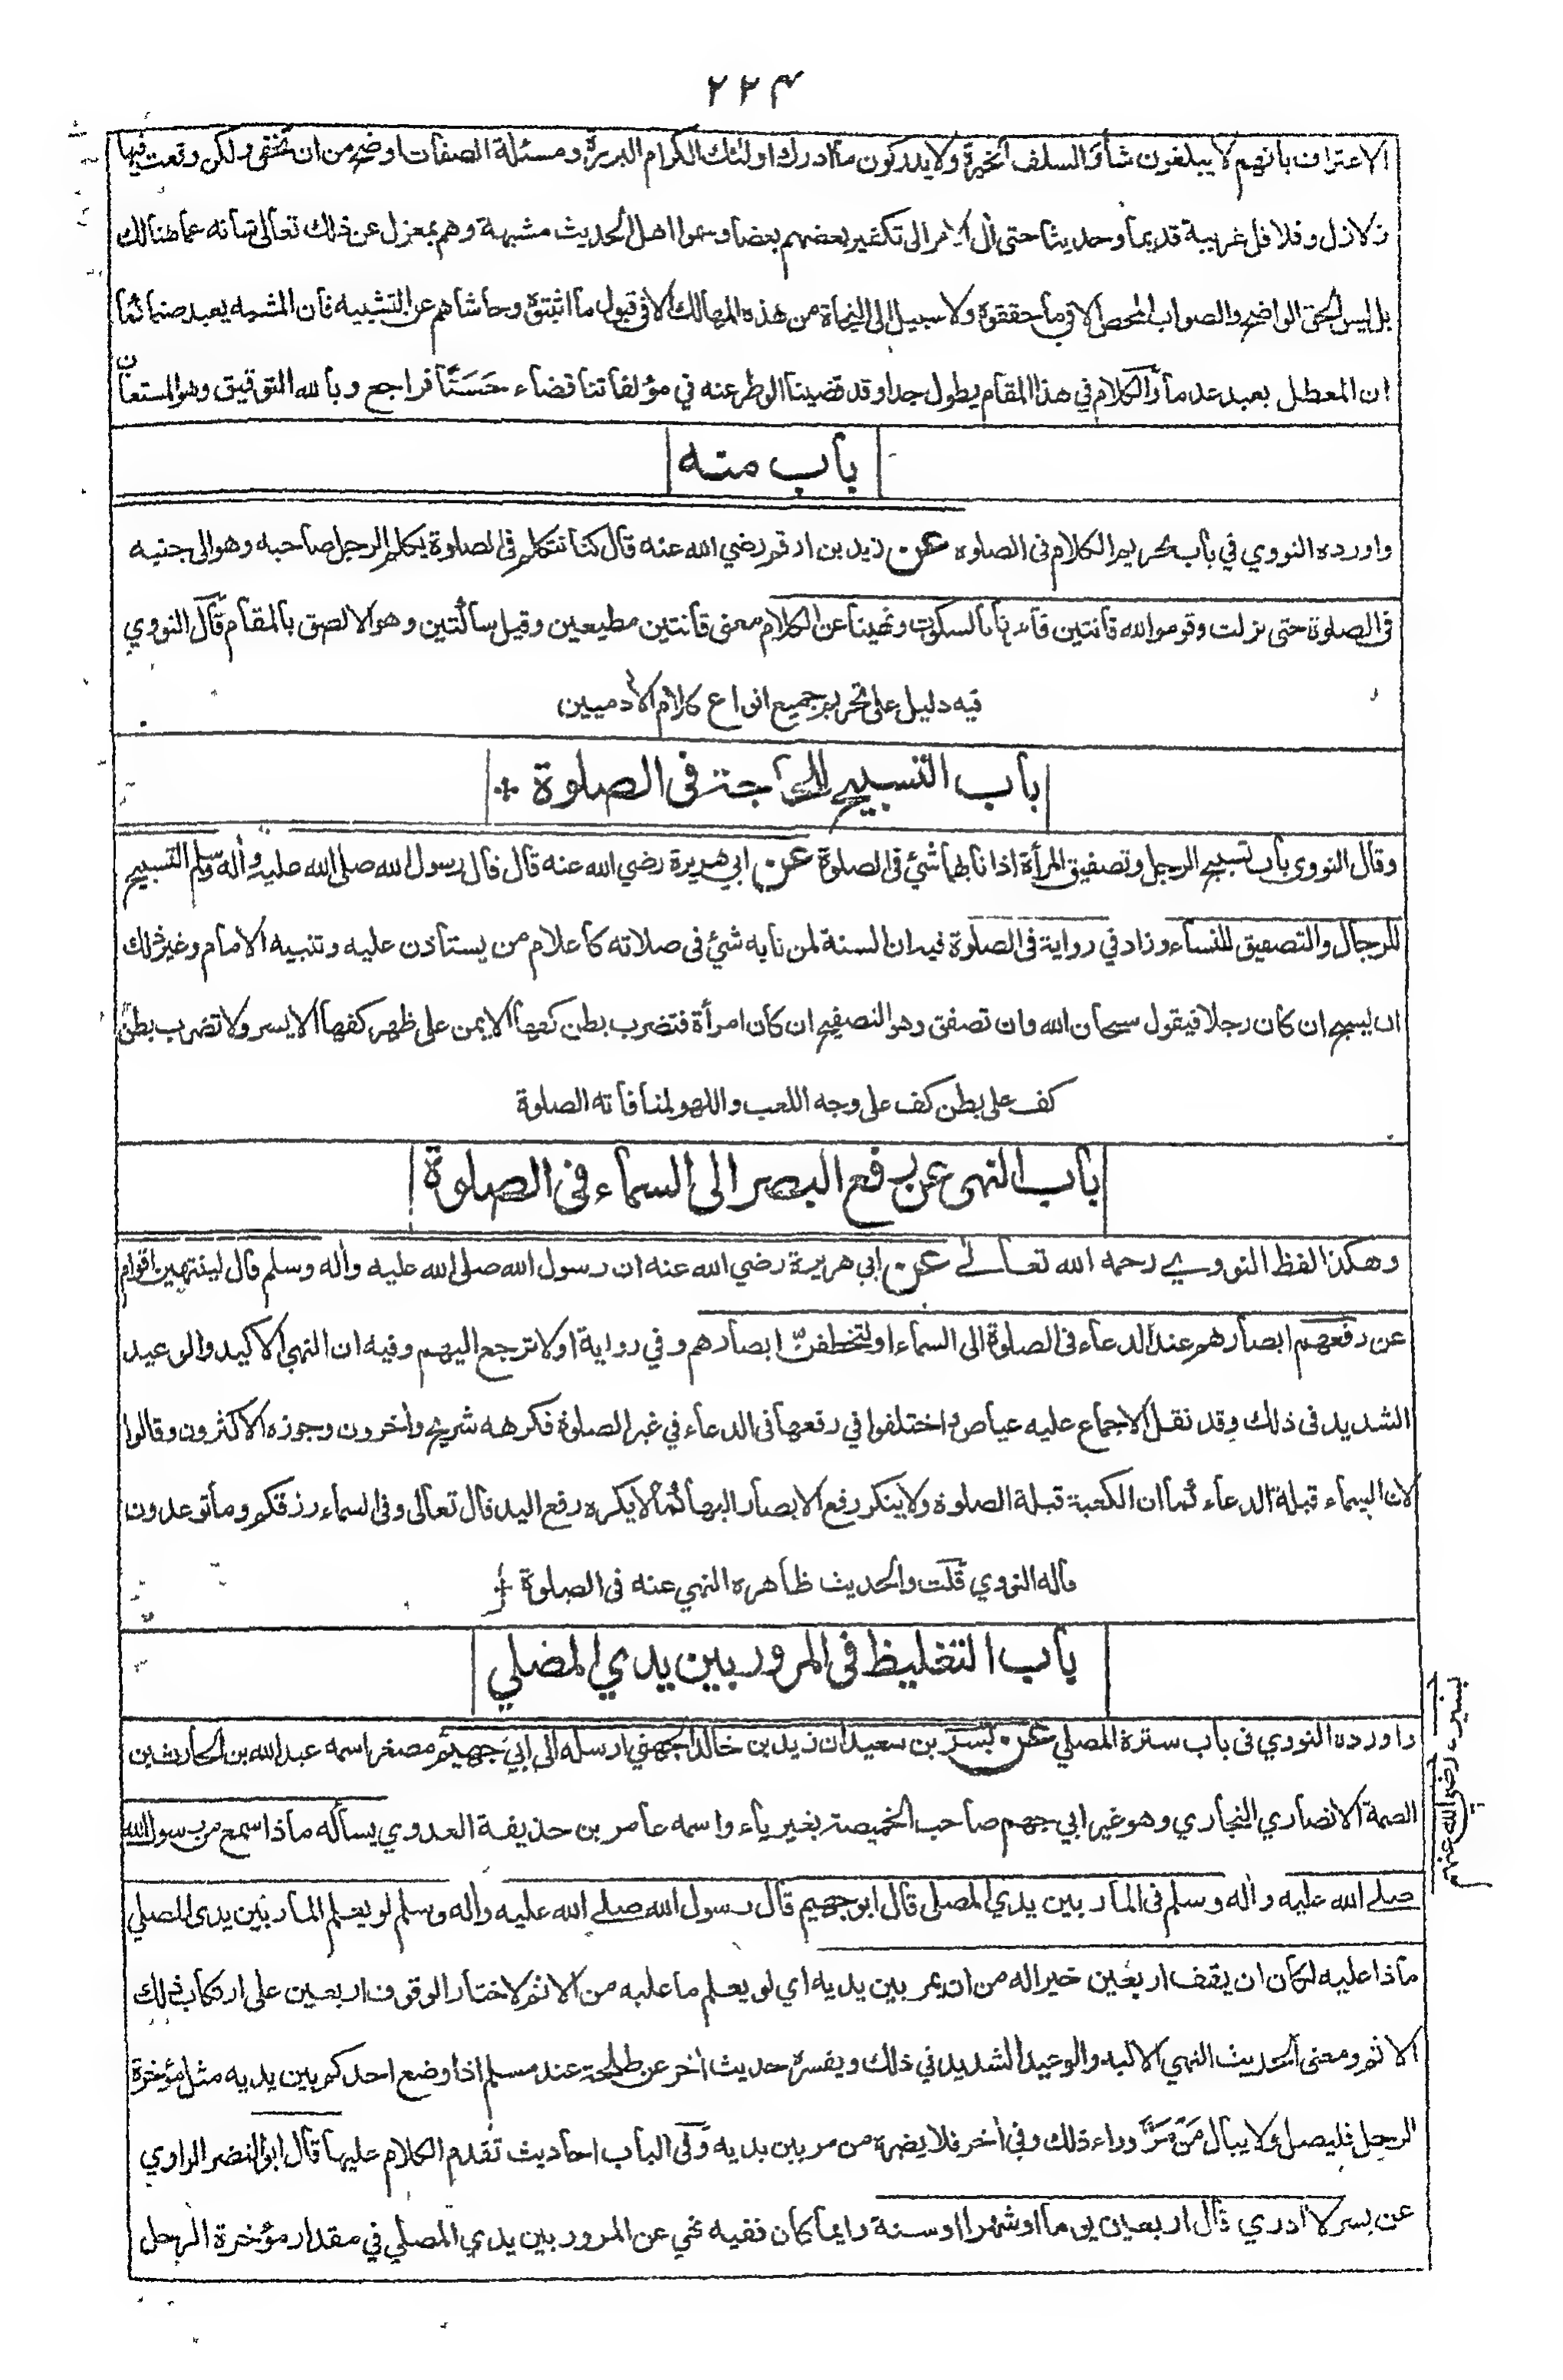 ٢٢٤
الاعتراف بانهم لا يبلغون شأو السلف الخيرة ولا يدركون ما ادرك اولئك الكرام البررة ومسئلة الصفات اوضح من ان تخفى ولكن وقعت فيها
زلازل وقلاقل غريبة قديما وحديثا حتى آل الامر الى تكفير بعضهم بعضا وسموا اهل الحديث مشبهة وهم بمعزل عن ذلك تعالى شانه عما هنالك
بل ليس الحق الواضح والصواب المحض الا في ما حققوه ولا سبيل الى النجاة من هذه المهالك الا في قبول ما اثبتوه وحاشاهم عن التشبيه فان المشبه يعبد صنما كما
ان المعطل يعبد عدما والكلام في هذا المقام يطول جدا وقد قضينا الوطر عنه في مؤلفاتنا قضاء حَسَنًا فراجع وبالله التوفيق وهو المستعان
باب منه
واورده النووي في باب تحريم الكلام فى الصلوة عن زيد بن ارقم رضي الله عنه قال كنا نتكلم فى الصلوة يكلم الرجل صاحبه وهو الى جنبه
فى الصلوة حتى نزلت وقوموا لله قانتين فأمرنا بالسكوت ونهينا عن الكلام معنى قانتين مطيعين وقيل ساكتين وهو الالصق بالمقام قال النووي
فيه دليل على تحريم جميع انواع كلام الأدميين
باب التسبيح للحاجة فى الصلوة
وقال النووى باب تسبيح الرجل وتصفيق المرأة اذا نابهما شئ فى الصلوة عن ابي هريرة رضي الله عنه قال قال رسول الله صلى الله عليه وأله وسلم التسبيح
للرجال والتصفيق للنساء وزاد في رواية فى الصلوة فيه ان السنة لمن نابه شئ فى صلاته كاعلام من يستاذن عليه وتنبيه الامام وغير ذلك
ان يسبح ان كان رجلا فيقول سبحان الله وان تصفق وهو التصفيح ان كان امرأة فتضرب بطن كفها الايمن على ظهر كفها الايسر ولا تضرب بطن
كف على بطن كف على وجه اللعب واللهو لمنافاته الصلوة
باب النهى عن رفع البصر الى السماء فى الصلوة
وهكذا لفظ النووي رحمه الله تعالى عن ابي هريرة رضي الله عنه ان رسول الله صلى الله عليه وأله وسلم قال لينتهين اقوام
عن رفعهم ابصارهم عند الدعاء فى الصلوة الى السماء او لتخطفنّ ابصارهم وفي رواية او لا ترجع اليهم وفيه ان النهي الاكيد والوعيد
الشديد فى ذلك وقد نقل الاجماع عليه عياض واختلفوا في رفعها فى الدعاء في غير الصلوة فكرهه شريح وأخرون وجوزه الاكثرون وقالوا
لان السماء قبلة الدعاء كما ان الكعبة قبلة الصلوة ولا ينكر رفع الابصار اليها كما لا يكره رفع اليد قال تعالى وفى السماء رزقكم وما توعدون
قاله النووي قلت والحديث ظاهره النهي عنه فى الصلوة
باب التغليظ فى المرور بين يدي المصلي
واورده النووي فى باب سترة المصلي عن بُسر بن سعيد ان زيد بن خالد الجهني ارسله الى ابي جهيم مصغر اسمه عبد الله بن الحارث بن
الصمة الانصاري النجاري وهو غير ابي جهم صاحب الخميصة بغير ياء واسمه عامر بن حذيفة العدوي يسأله ماذا سمع من رسول الله
صلى الله عليه وأله وسلم فى المار بين يدي المصلى قال ابو جهيم قال رسول الله صلى الله عليه وأله وسلم لو يعلم المار بين يدى المصلي
ماذا عليه لكان ان يقف اربعين خيرا له من ان يمر بين يديه اي لو يعلم ما عليه من الاثم لاختار الوقوف اربعين على ارتكاب ذلك
الاثم ومعنى الحديث النهي الاكيد والوعيد الشديد في ذلك ويفسره حديث أخر عن طلحة عند مسلم اذا وضع احدكم بين يديه مثل مؤخرة
الرحل فليصل ولا يبال مَن مَرَّ وراء ذلك وفي أخر فلا يضره من مر بين يديه وفى الباب احاديث تقدم الكلام عليها قال ابو النضر الراوي
عن بسر لا ادري قال اربعين يوما او شهرا او سنة وايما كان ففيه نهي عن المرور بين يدي المصلي في مقدار مؤخرة الرحل